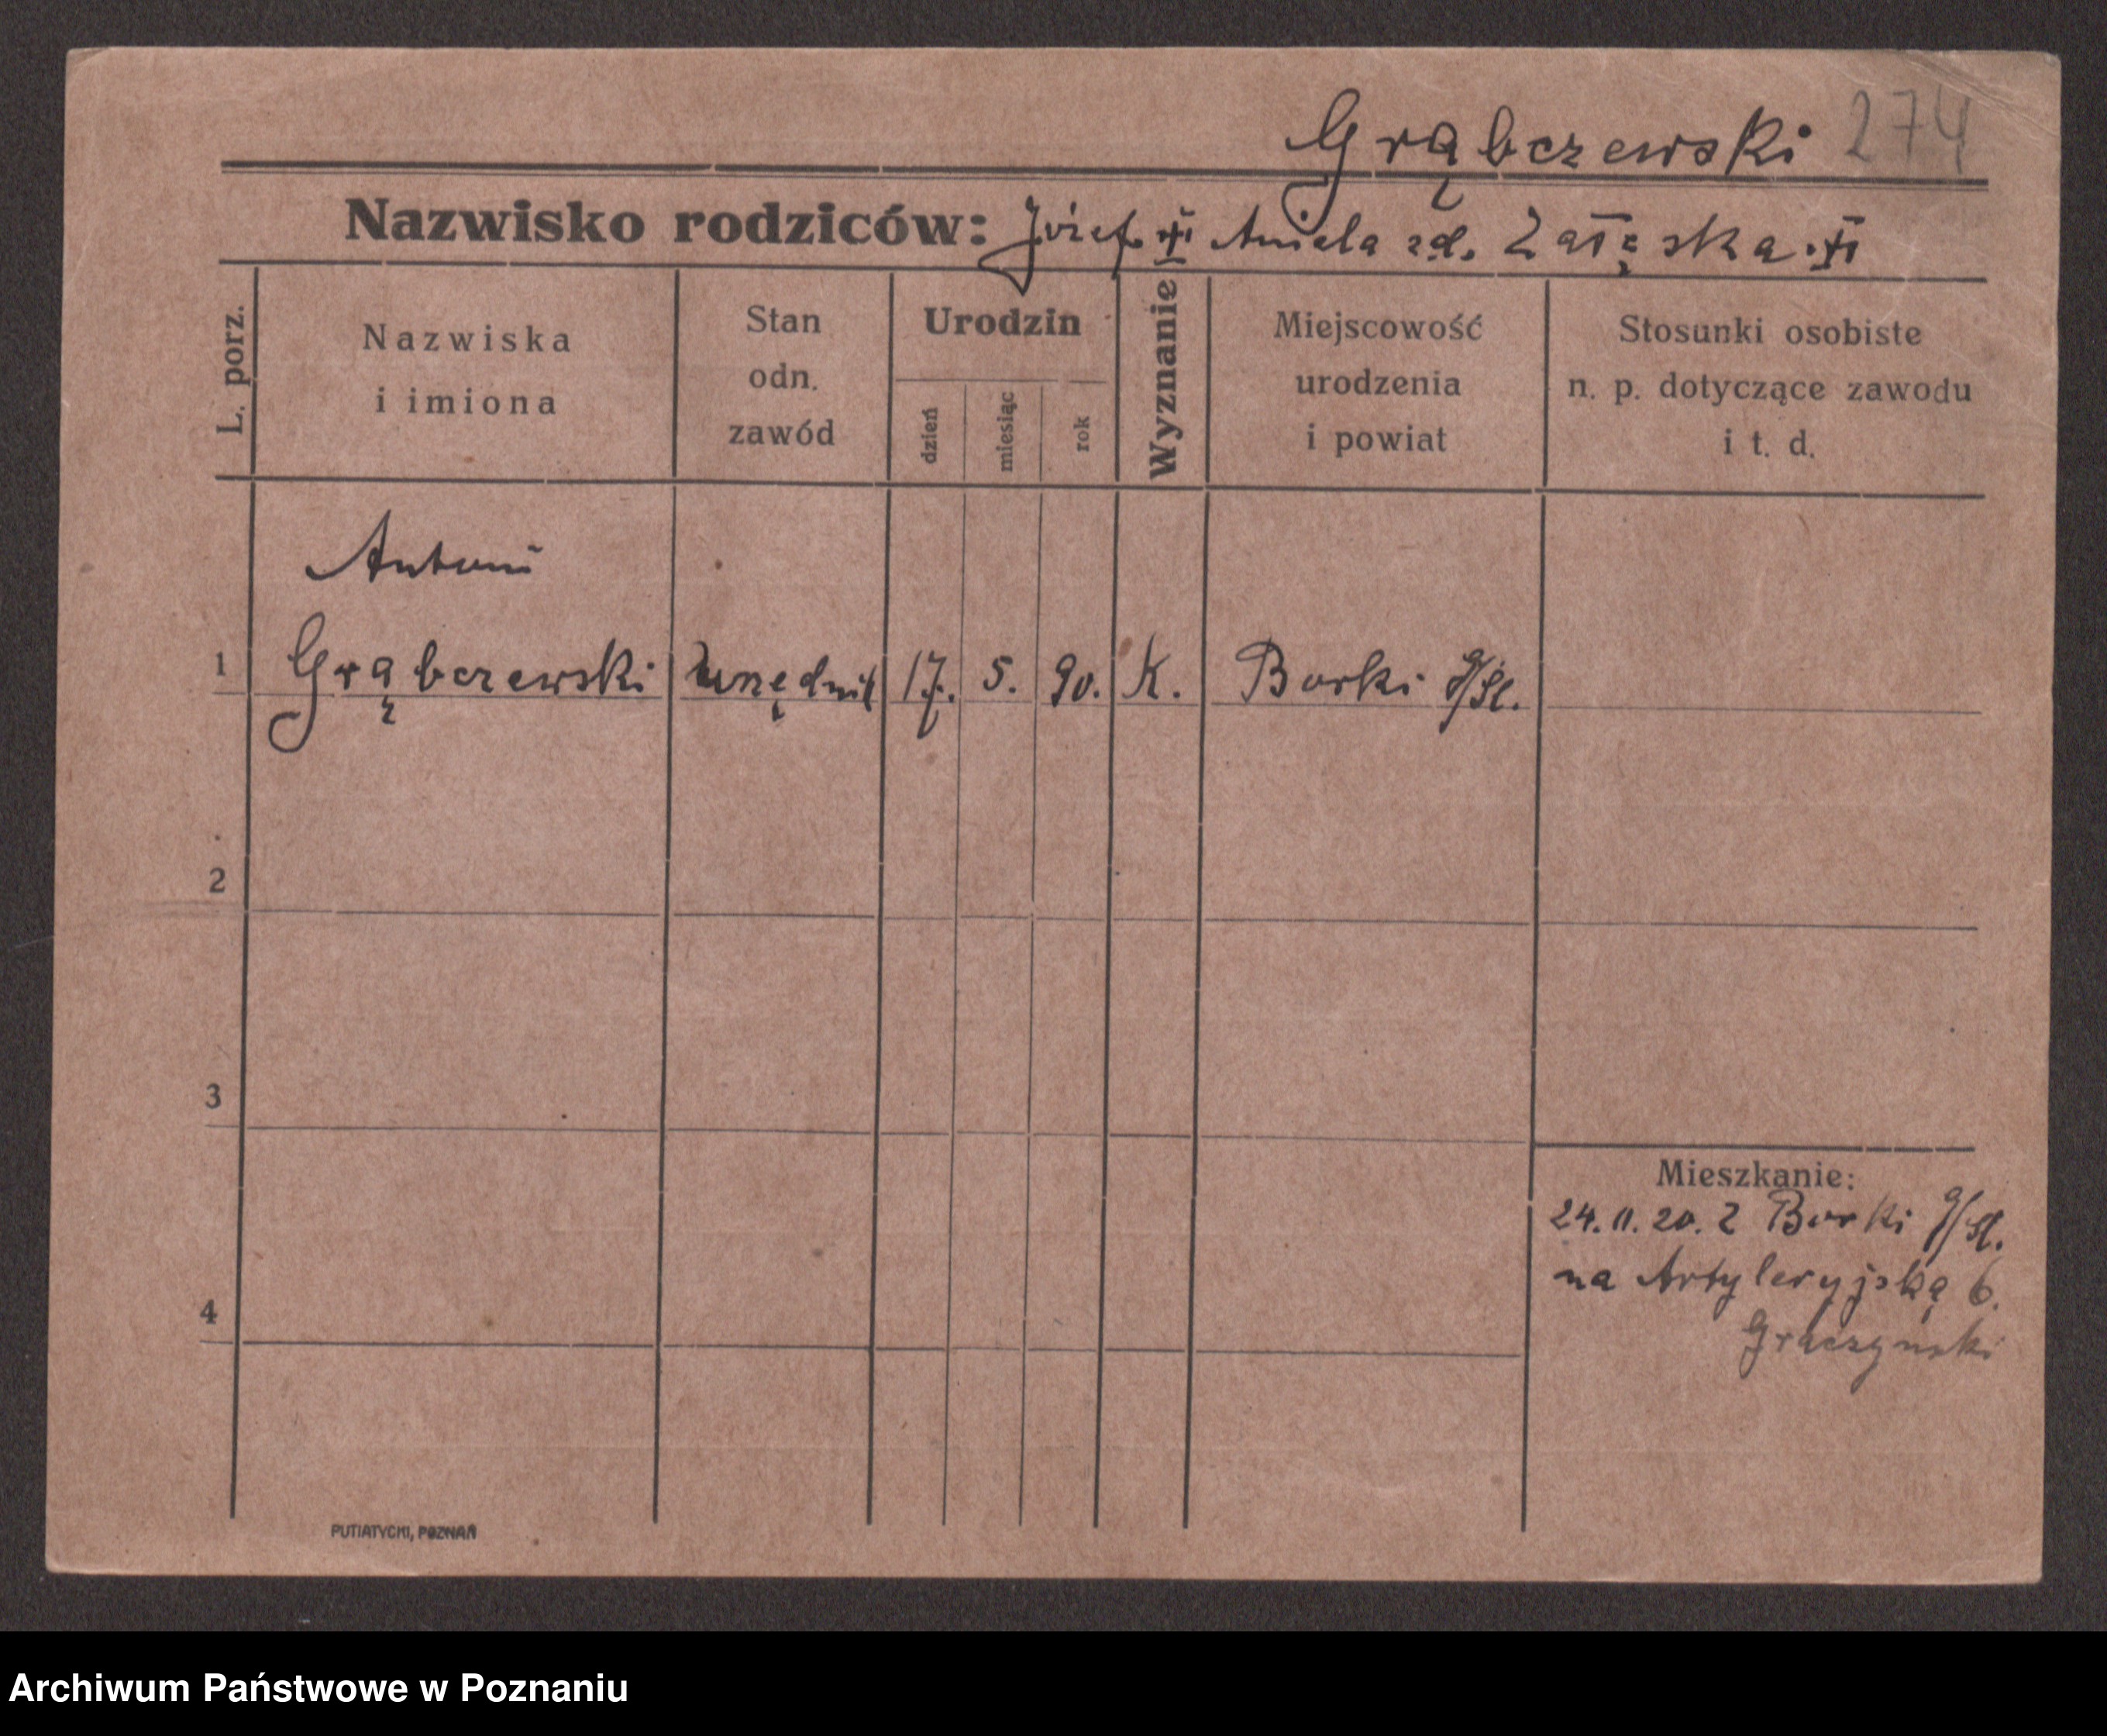 Grąbczewski 274
Nazwisko rodziców: Józef. Aniela zd. Załęska.
L. porz.
Nazwiska
i imiona
Stan
odn.
zawód
Urodzin
dzień
miesiąc
rok
Wyznanie
Miejscowość
urodzenia
i powiat
Stosunki osobiste
n. p. dotyczące zawodu
i t. d.
Antoni
1 Grąbczewski urzędnik 17. 5. 90. K. Borki G/Śl.
2
3
4
Mieszkanie:
24. 11. 20. z Borki G/Śl.
na Artyleryjską 6.
Graczyński
PUTIATYCKI, POZNAŃ
Archiwum Państwowe w Poznaniu